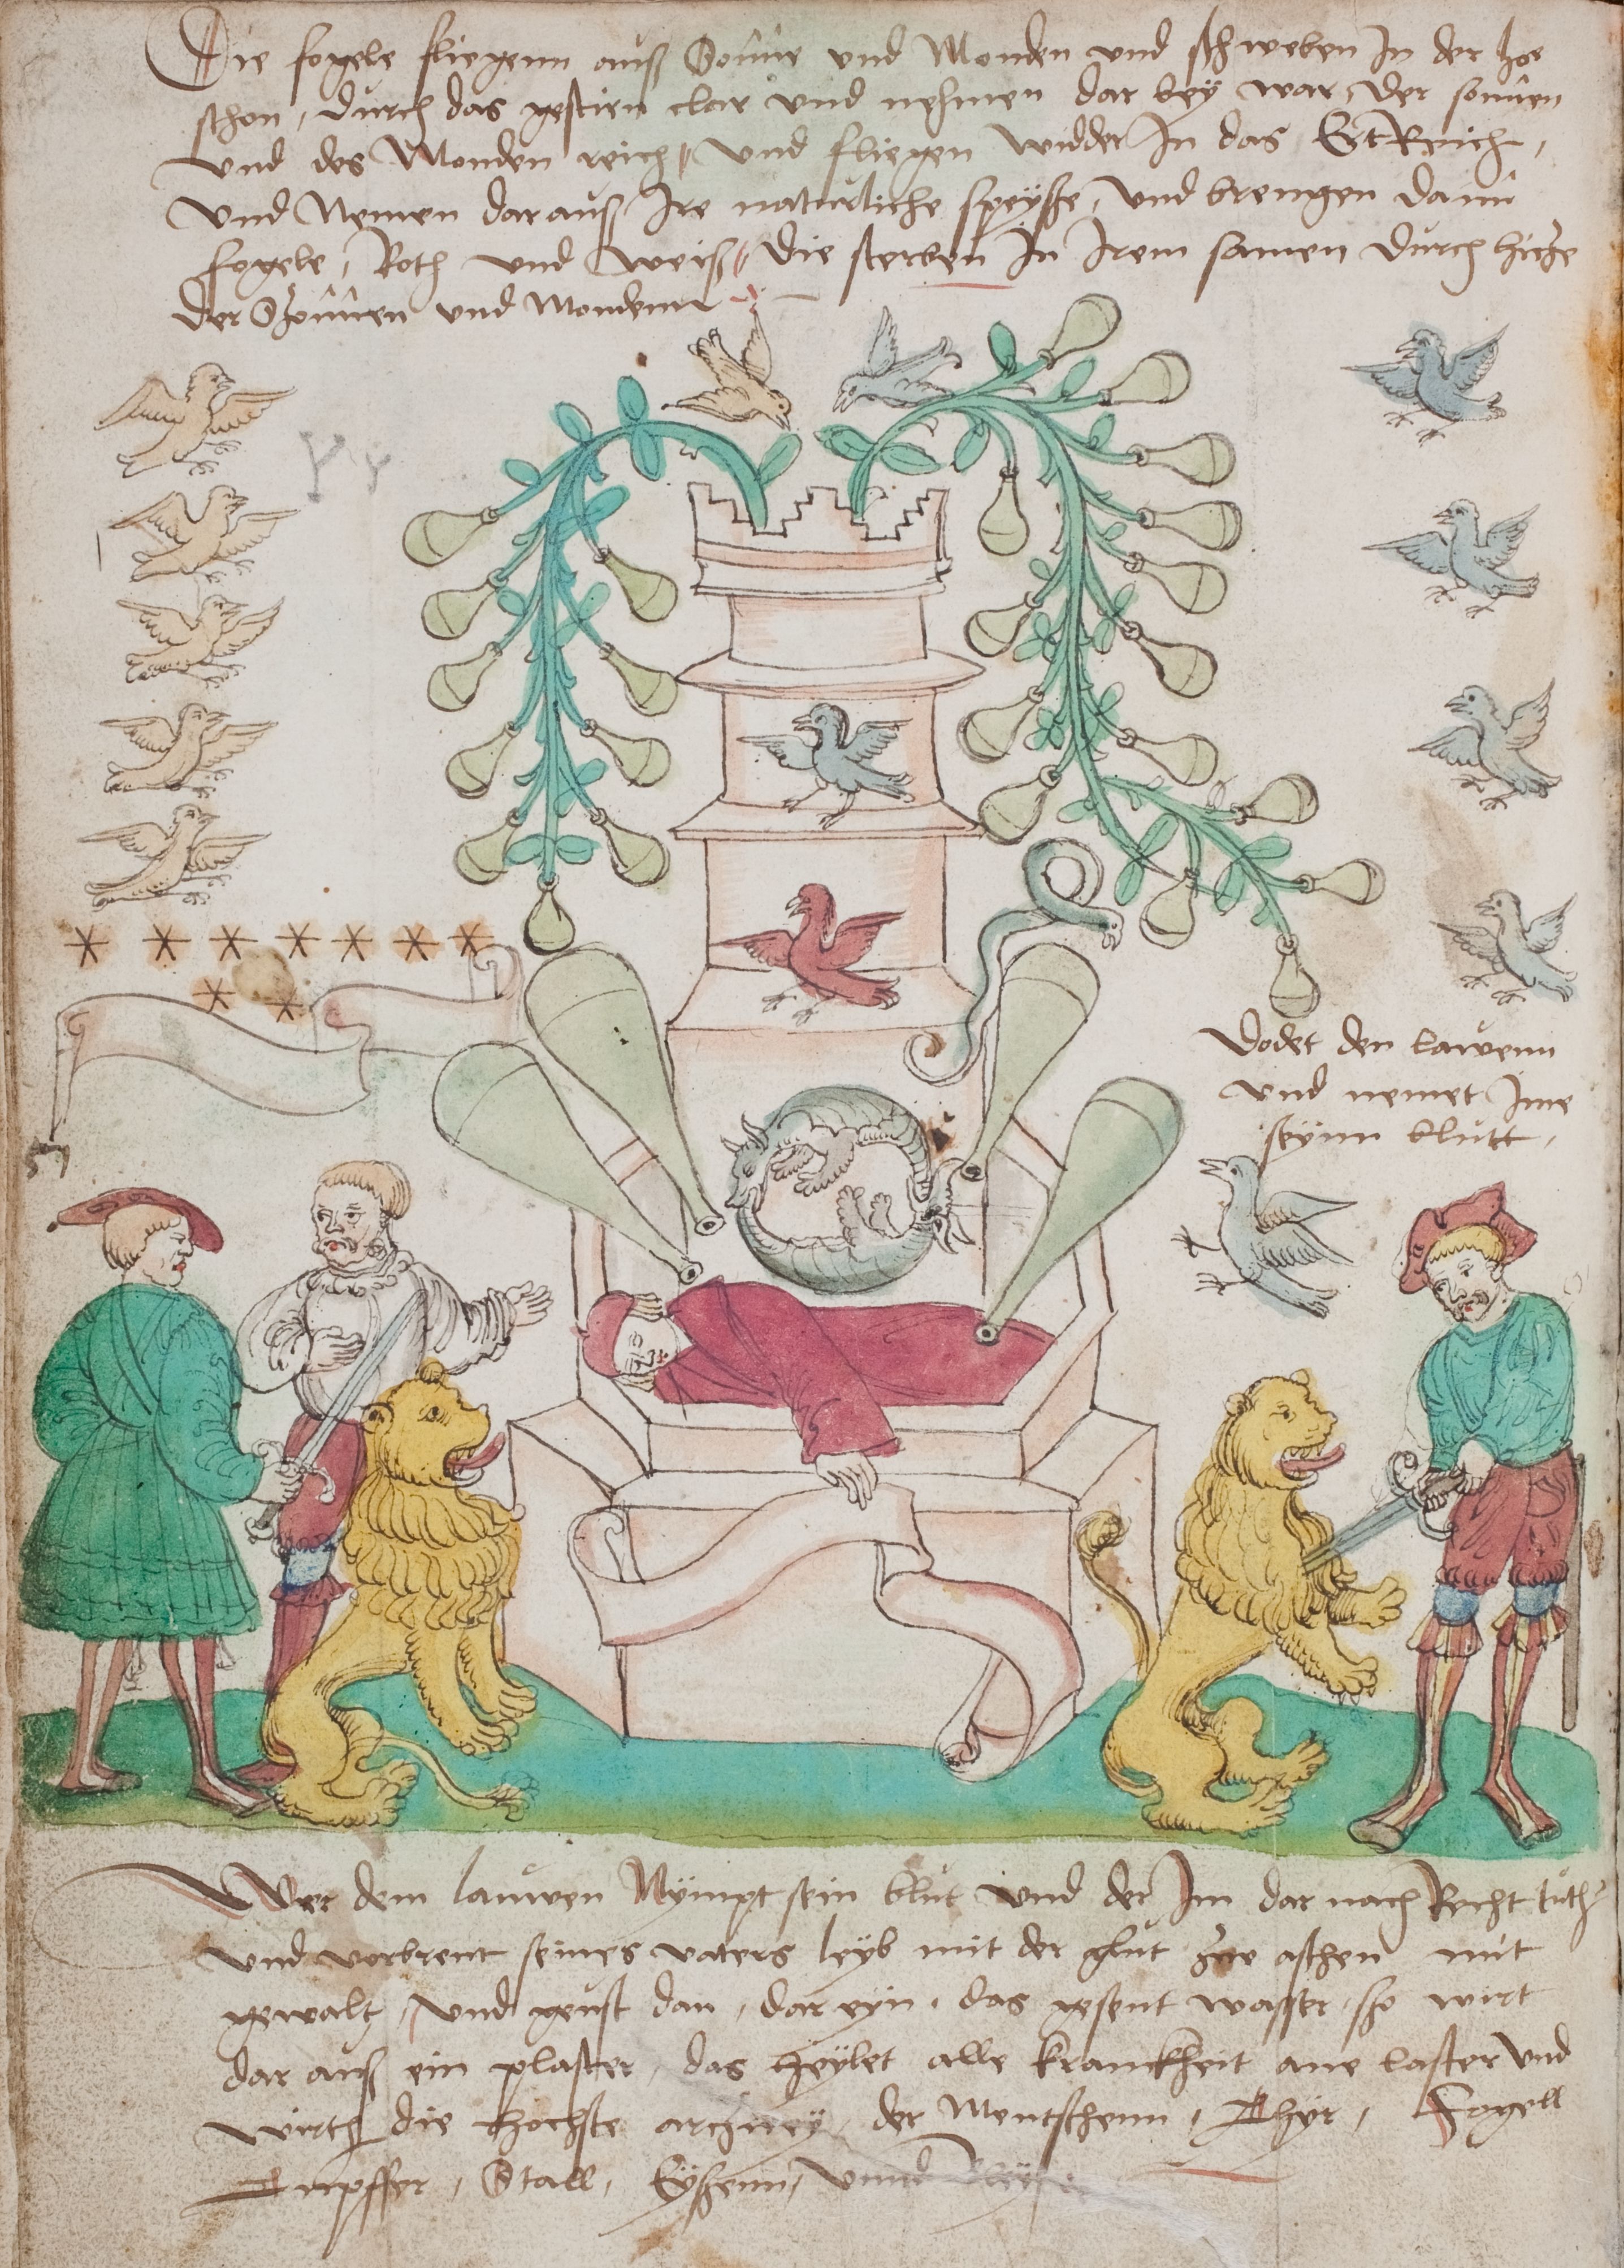 Die fogele fliegenn auß Sonne und Monden und schweben In der hoe
schon, durch das gestirn clar und nehmen dar bey war, der sonnen
und des Monden reich, und fliegen widder In das Ertreich,
und Nemen dar auß Ire naturliche speysse, und brengen dann
fogele, Roth und weiß, die sterben In Irem samen durch hitze
der Sonnen und Mondenn
Dodet den lauwenn
und nemet Ime
seynn blutt,
Wer dem lauwen Nympt sein blut und der Im dar nach Recht tuth
und vorbrent seines vaters leyb mit der glut zue aschen mit
gewalt, und geust dan, dar eyn, das gesent wasser, so wirt
dar auß ein plaster, das heylet alle kranckheit ane laster und
wirth die hochste artzney, der Mentschenn, Thyr, Fogell
Kupffer, Stall, Eyssenn, unnd